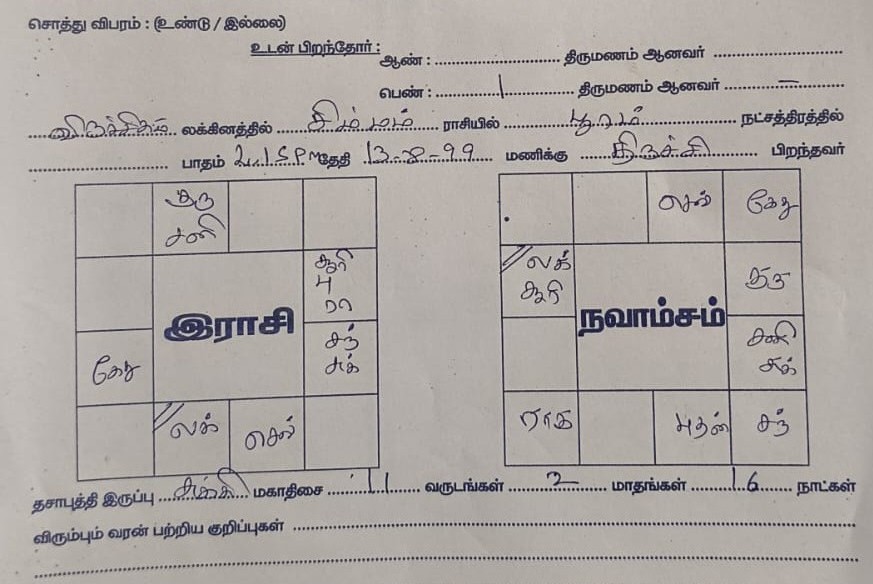 சொத்து விபரம் : (உண்டு / இல்லை)
உடன் பிறந்தோர் :
ஆண் : .............................. திருமணம் ஆனவர் ..............................
பெண் : ............1............ திருமணம் ஆனவர் ............–............
விருச்சிகம் லக்கினத்தில் சிம்மம் ராசியில் பூரம் நட்சத்திரத்தில்
.............................. பாதம் 2.15 PM தேதி 13-8-99 மணிக்கு திருச்சி பிறந்தவர்
குரு சனி
செவ் கேது
சூரி பு ரா
லக் சூரி
குரு
இராசி
நவாம்சம்
கேது
சந் சுக்
சனி சுக்
லக் செவ்
ராகு புதன் சந்
தசாபுத்தி இருப்பு சுக்கி மகாதிசை 11 வருடங்கள் 2 மாதங்கள் 16 நாட்கள்
விரும்பும் வரன் பற்றிய குறிப்புகள் ..............................